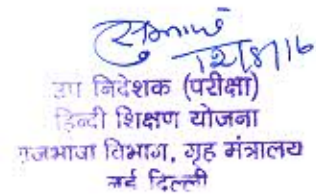 12/8/16
उप निदेशक (परीक्षा)
हिन्दी शिक्षण योजना
राजभाषा विभाग, गृह मंत्रालय
नई दिल्ली